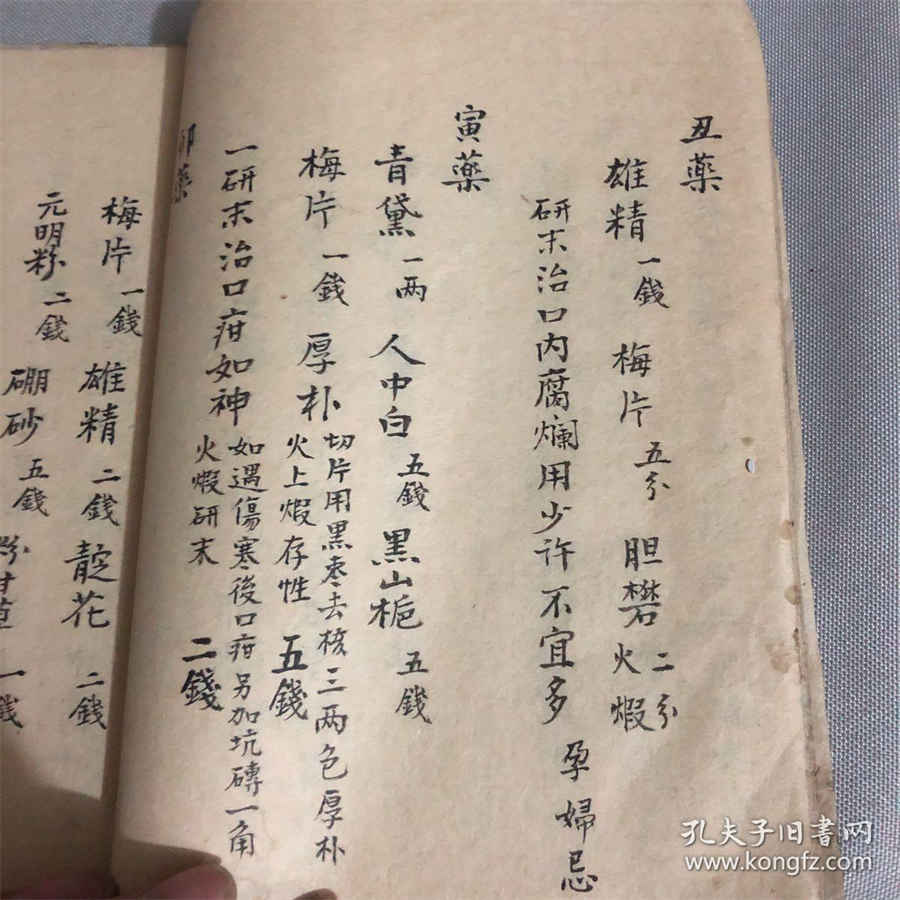 丑薬
雄精 一錢 梅片 五分 胆礬 二分 火煅
研末治口内腐爛用少許不宜多 孕婦忌
寅薬
青黛 一两 人中白 五錢 黑山栀 五錢
梅片 一錢 厚朴 切片用黑枣去核三两包厚朴火上煅存性 五錢
一研末治口疳如神 如遇傷寒後口疳另加坑磚一角火煅研末 二錢
卯薬
梅片 一錢 雄精 二錢 靛花 二錢
元明粉 二錢 硼砂 五錢 粉甘草 一錢
孔夫子旧書网
www.kongfz.com